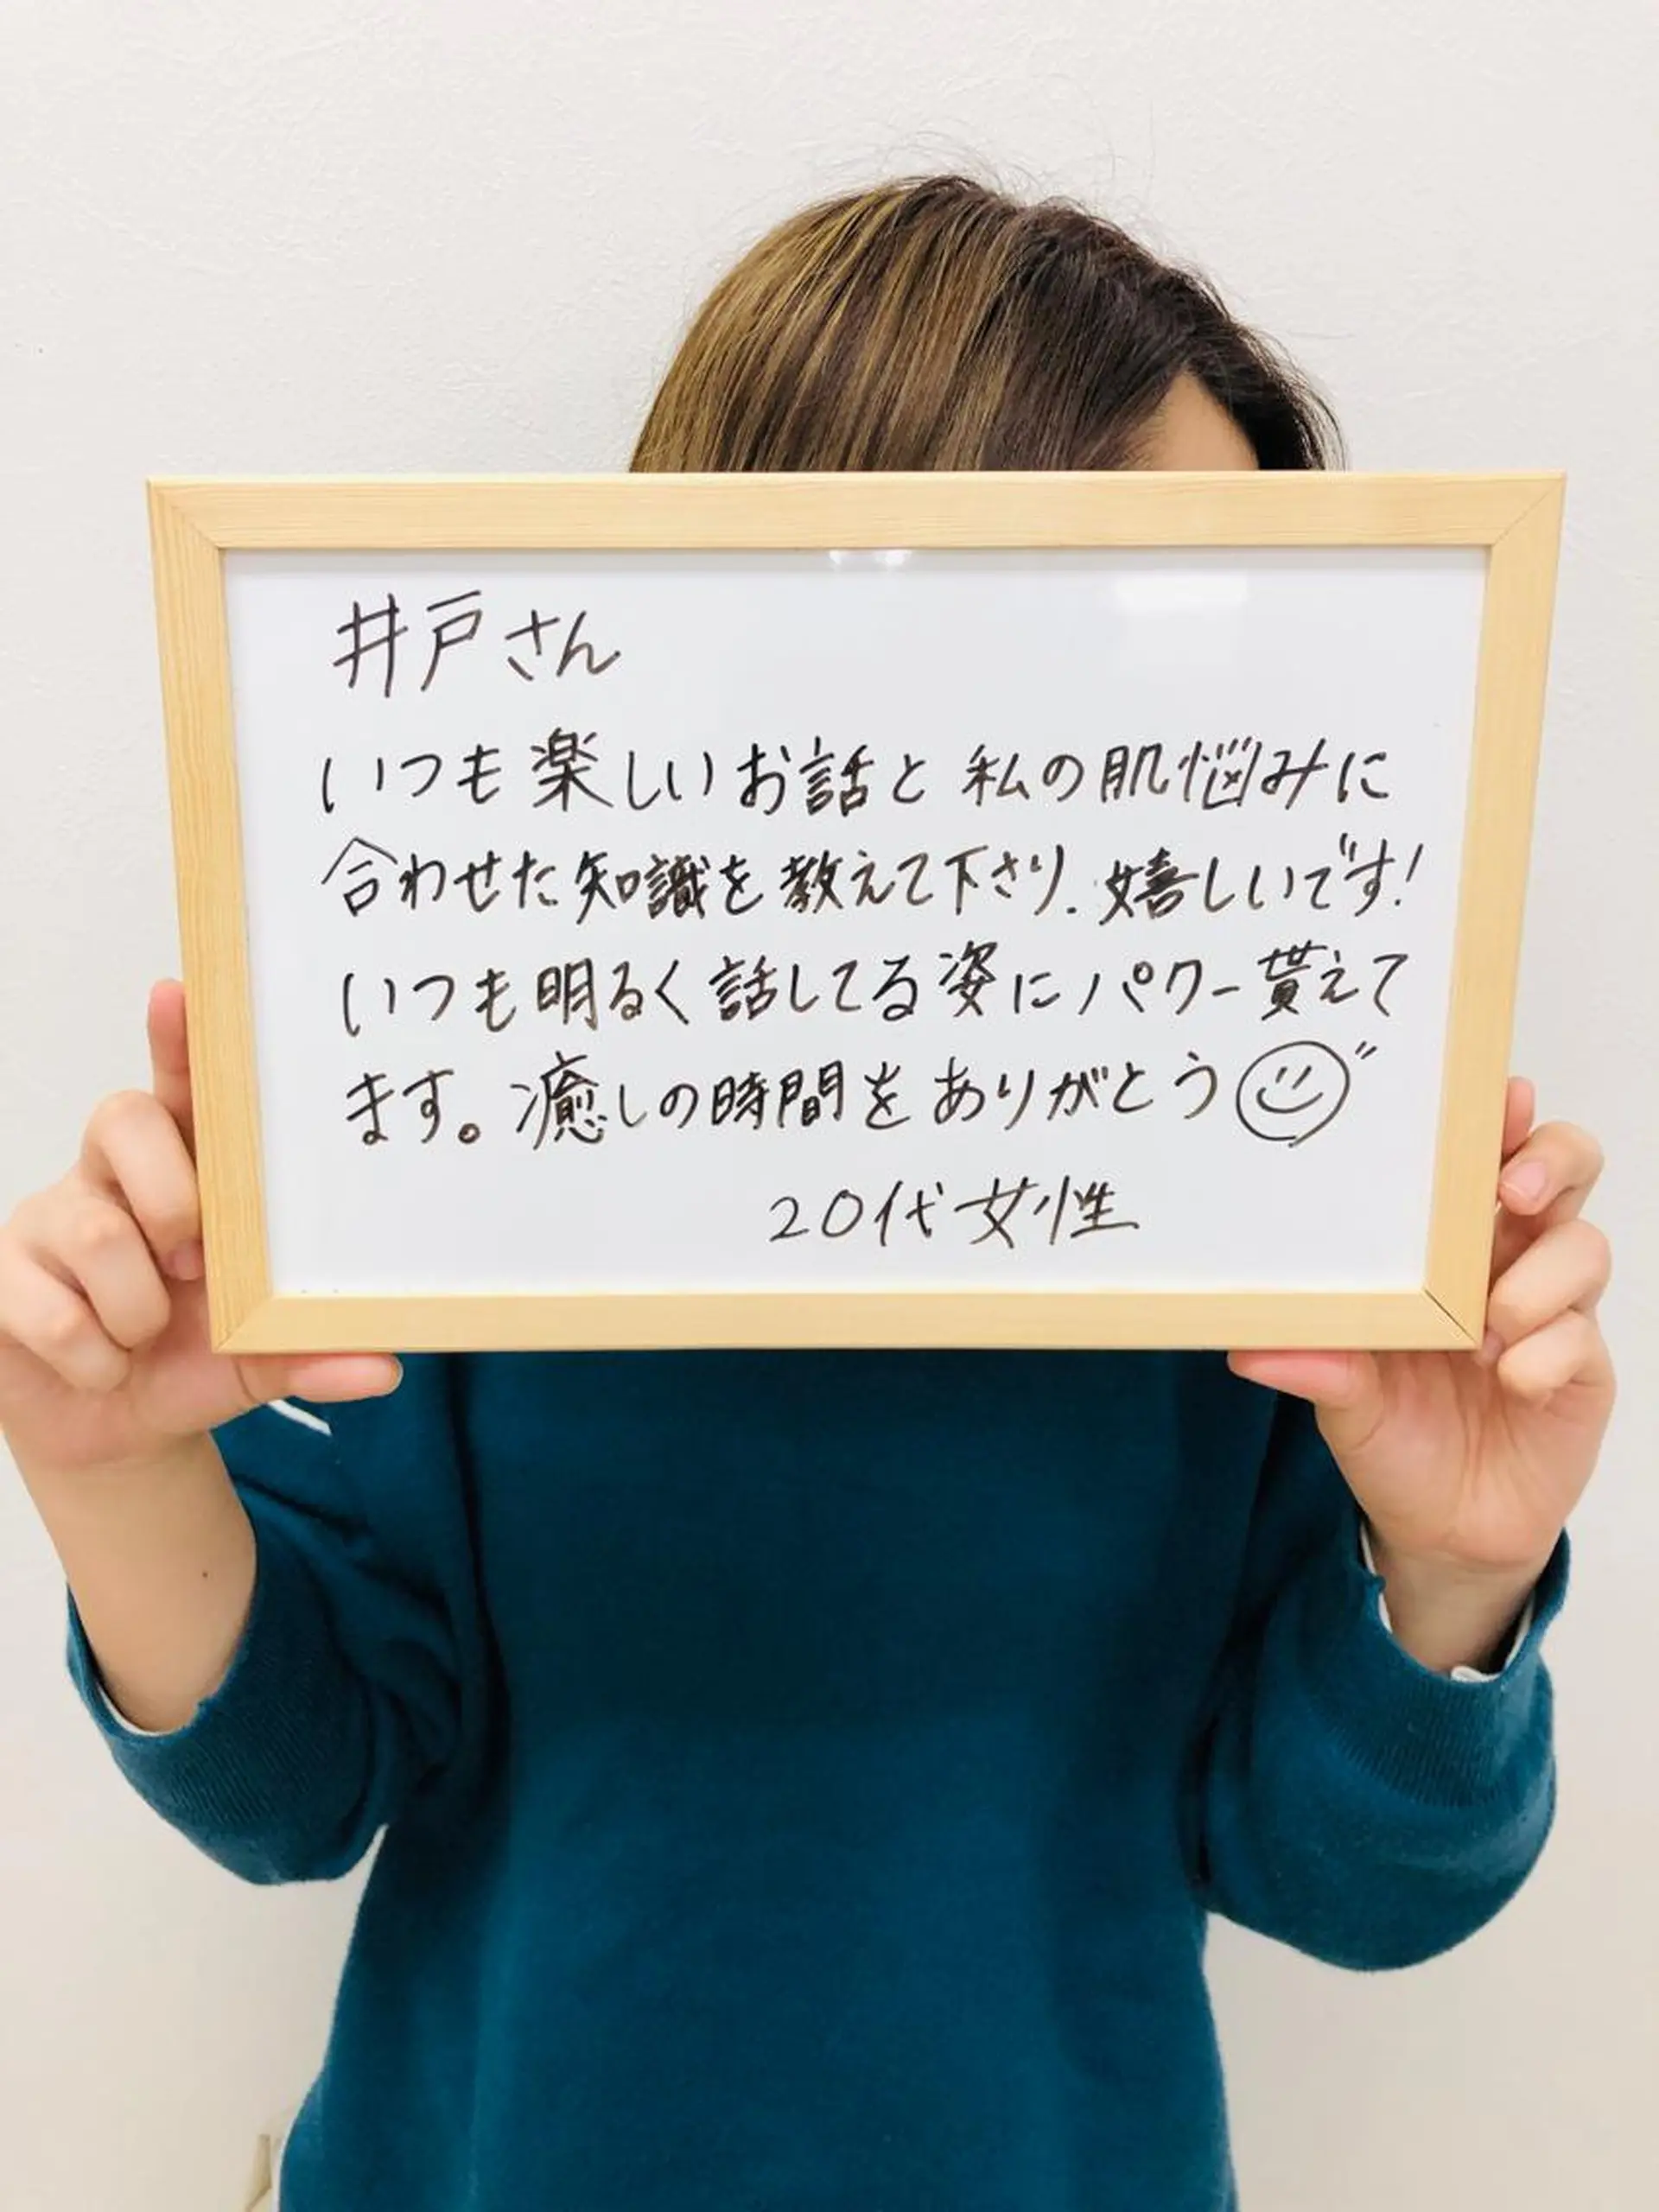 井戸さん
いつも楽しいお話と私の肌悩みに
合わせた知識を教えて下さり、嬉しいです!
いつも明るく話してる姿にパワー貰えて
ます。癒しの時間をありがとう
20代女性